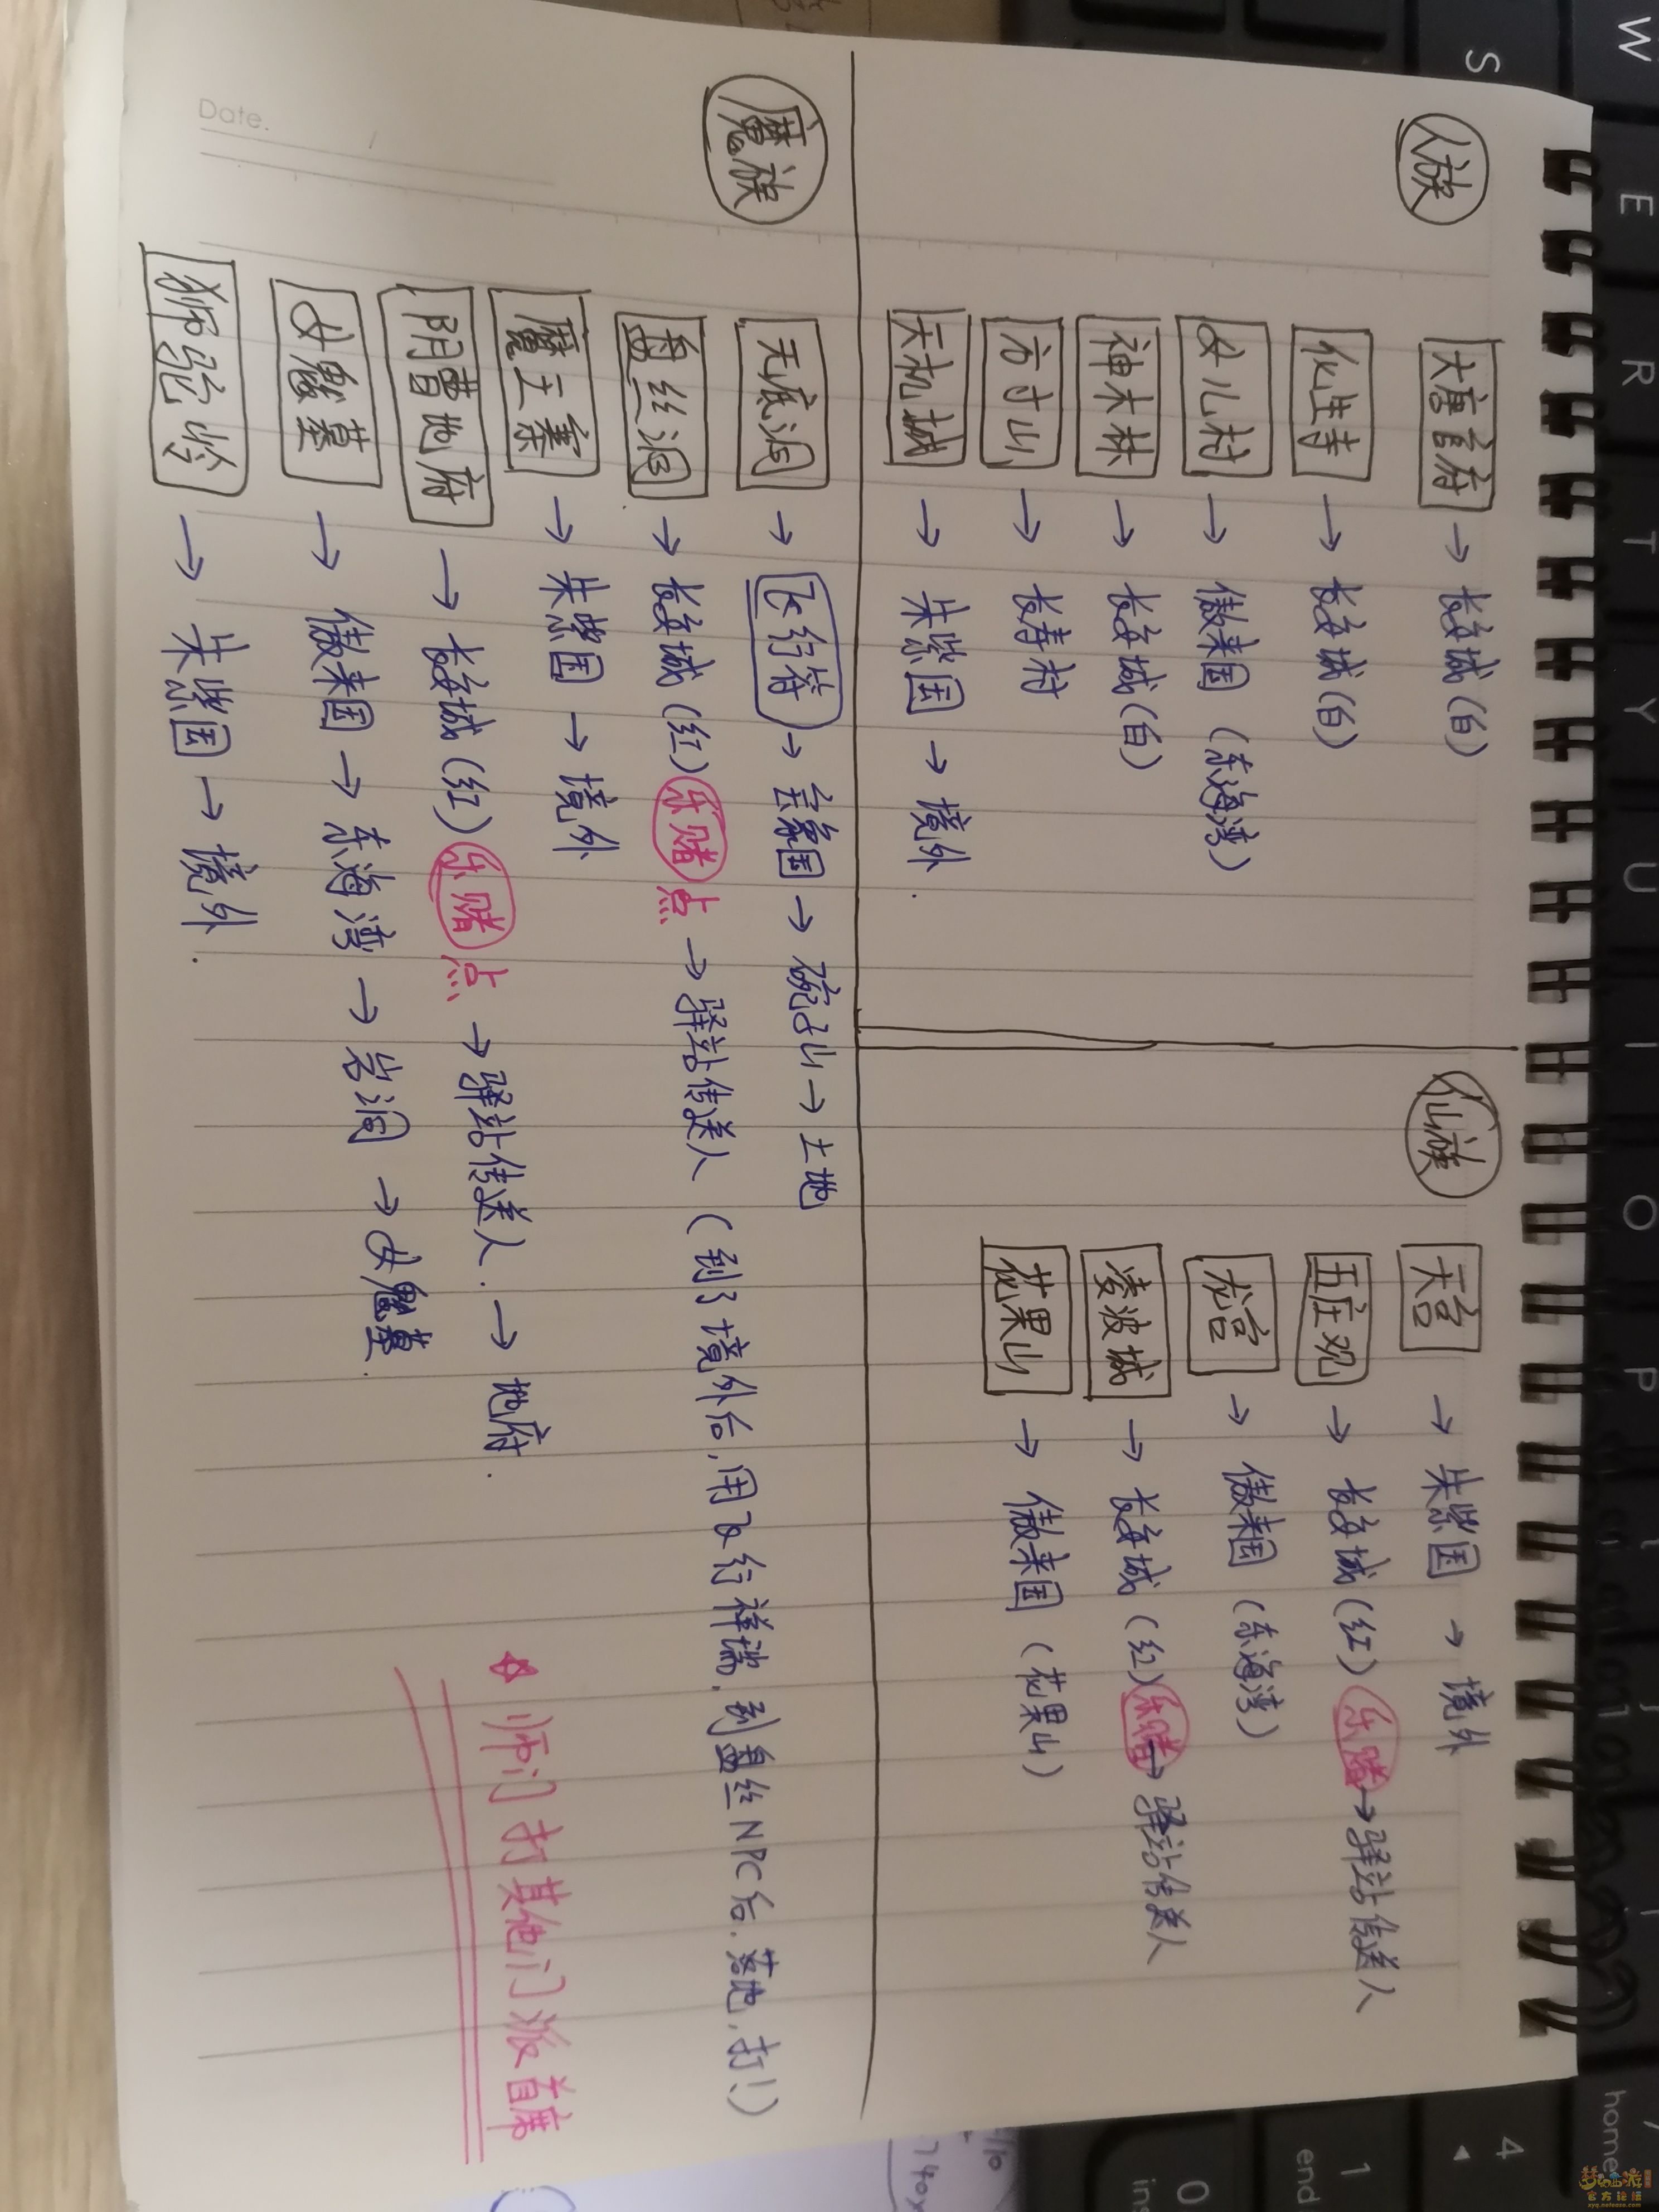 人族
大唐官府 → 长安城(白)
化生寺 → 长安城(白)
女儿村 → 傲来国 (东海湾)
神木林 → 长安城(白)
方寸山 → 长寿村
天机城 → 朱紫国 → 境外.
仙族
天宫 → 朱紫国 → 境外
五庄观 → 长安城(红) 乐赌→驿站传送人
龙宫 → 傲来国 (东海湾)
凌波城 → 长安城(红)乐赌→驿站传送人
花果山 → 傲来国 (花果山)
魔族
无底洞 → 飞行符 → 宝象国 → 碗子山 → 土地
盘丝洞 → 长安城(红)乐赌点 → 驿站传送人 (到了境外后,用飞行祥瑞,到盘丝NPC后.落地,打!)
魔王寨 → 朱紫国 → 境外
阴曹地府 → 长安城(红)乐赌点 → 驿站传送人. → 地府.
女魃墓 → 傲来国 → 东海湾 → 岩洞 → 女魃墓.
狮驼岭 → 朱紫国 → 境外.
☆ 师门打其他门派首席
Date. /
W E R T Y U I O P
S
home
4
1 end
0 ins
梦幻西游
官方论坛
xyq.netease.com